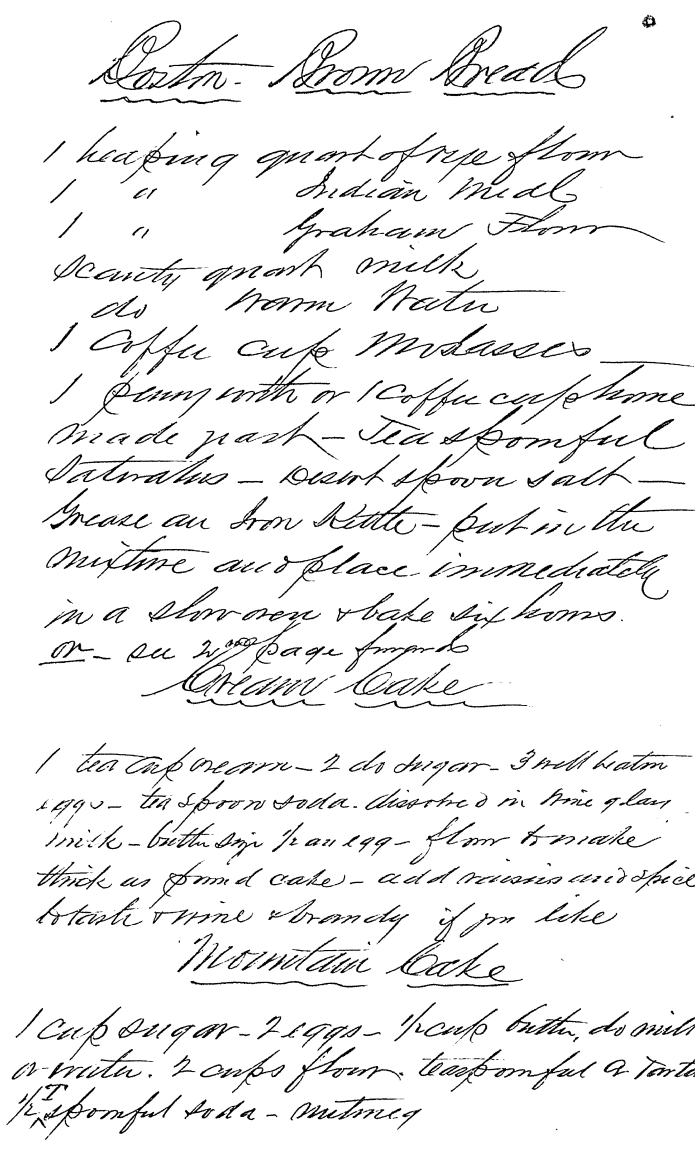 Boston Brown Bread
1 heaping quart of rye flour
1 " Indian Meal
1 " Graham Flour
Scanty quart milk
do Warm Water
1 Coffee cup Molasses
1 pennyworth or 1 Coffee cup home
made yeast - Teaspoonful
Saleratus - Desert spoon salt -
Grease an Iron Kettle - put in the
mixture and place immediately
in a slow oven & bake six hours.
or - see 2nd page forward
Cream Cake
1 tea cup cream - 2 do sugar - 3 well beaten
eggs - teaspoon soda. dissolved in wine glass
milk - butter size 1/2 an egg - flour to make
thick as pound cake - add raisins and spice
to taste & wine & brandy if you like
Mountain Cake
1 cup sugar - 2 eggs - 1/2 cup butter, do milk
or water. 2 cups flour. teaspoonful C. Tarta
1/2 T spoonful soda - nutmeg